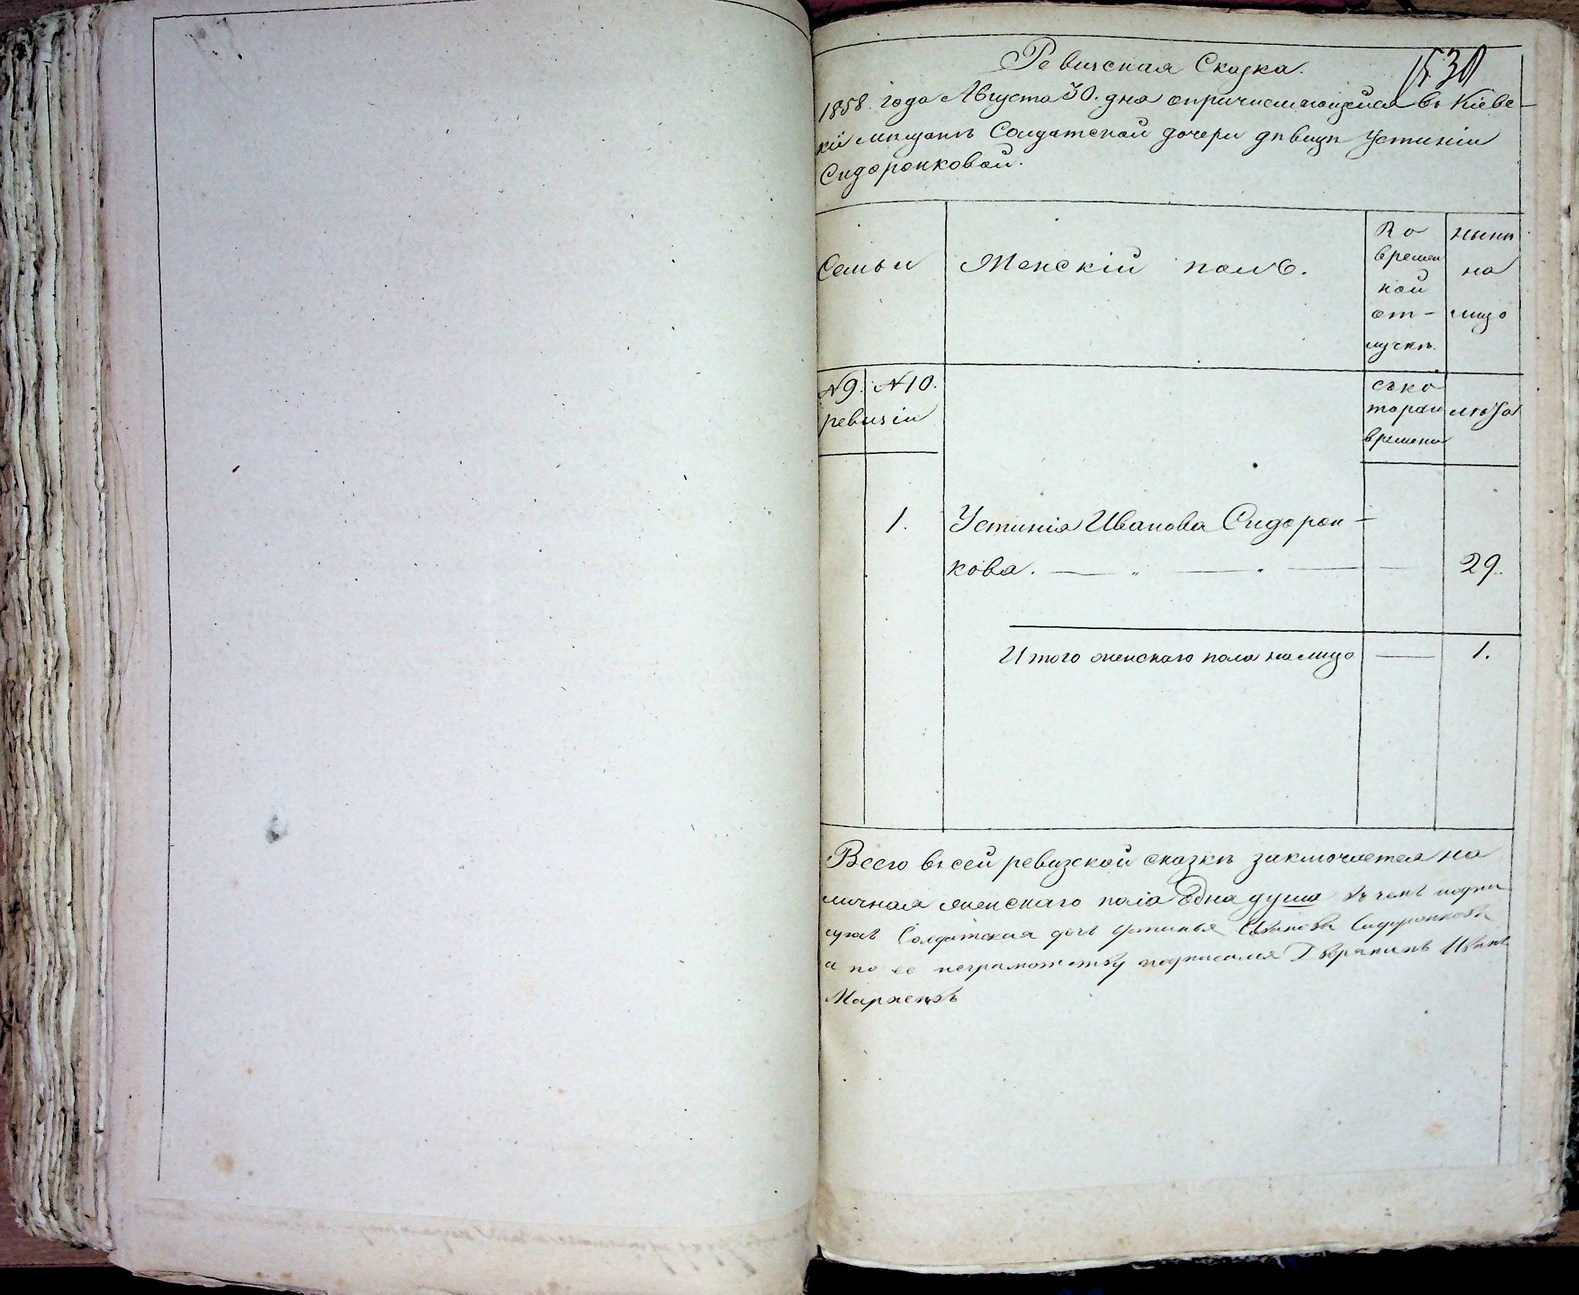 Ревизская Сказка.
1530
1858 года Августа 30. дня опричисляющейся въ Кіевс-
кіе мѣщане Солдатской дочери дѣвицѣ Устиніи
Сидоронковой.
Семьи
Женскій полъ.
Во
времен
ной
от-
лучкѣ.
Нынѣ
на
лицо
№9. №10.
ревизіи
съ ко
торои
времени
лѣта
1. Устинія Иванова Сидорон-
кова. 29.
Итого женскаго пола на лицо 1.
Всего въ сей ревизской сказкѣ заключается на
личная женскаго пола Одна душа въ чемъ подпи
Солдатская дочь Устинья Иванова Сидоронкова
а по ее неграмотству подписался Дворянинъ Иванъ